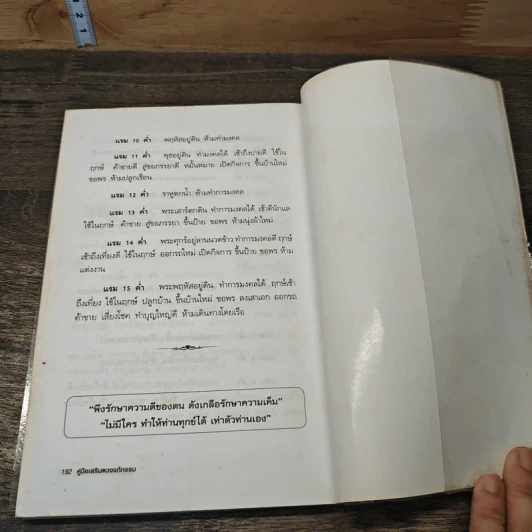 แรม 10 ค่ำ พฤหัสอยู่ดิน ห้ามทำมงคล
แรม 11 ค่ำ พุธอยู่ดิน ทำมงคลได้ เช้าถึงบ่ายดี ใช้ใน
ฤกษ์ ค้าขายดี สู่ขอภรรยาดี หมั้นหมาย เปิดกิจการ ขึ้นบ้านใหม่
ขอพร ห้ามปลูกเรือน
แรม 12 ค่ำ ราหูตกน้ำ ห้ามทำการมงคล
แรม 13 ค่ำ พระเสาร์ตกดิน ทำการมงคลได้ เช้าดีนักแล
ใช้ในฤกษ์ ค้าขาย สู่ขอภรรยา ขึ้นป้าย ขอพร ห้ามนุ่งผ้าใหม่
แรม 14 ค่ำ พระศุกร์อยู่ลานนวดข้าว ทำการมงคลดี ฤกษ์
เช้าถึงเที่ยงดี ใช้ในฤกษ์ ออกรถใหม่ เปิดกิจการ ขึ้นป้าย ขอพร ห้าม
แต่งงาน
แรม 15 ค่ำ พระพฤหัสอยู่ดิน ทำการมงคลได้ ฤกษ์เช้า
ถึงเที่ยง ใช้ในฤกษ์ ปลูกบ้าน ขึ้นบ้านใหม่ ขอพร ลงเสาเอก ออกรถ
ค้าขาย เสี่ยงโชค ทำบุญใหญ่ดี ห้ามเดินทางโดยเรือ
“พึงรักษาความดีของตน ดังเกลือรักษาความเค็ม”
“ไม่มีใคร ทำให้ท่านทุกข์ได้ เท่าตัวท่านเอง”
192 คู่มือเสริมดวงแก้กรรม
1
2